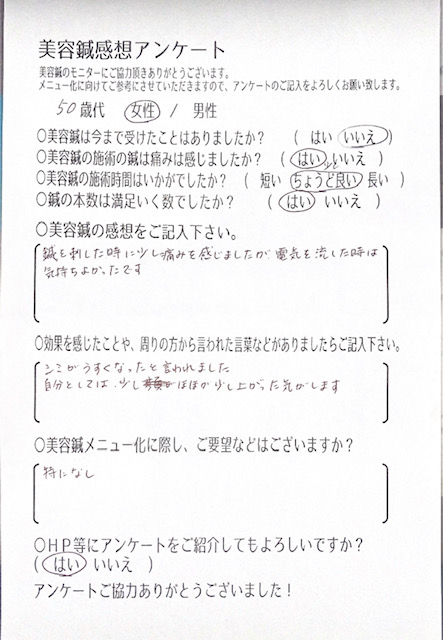 美容鍼感想アンケート
美容鍼のモニターにご協力頂きありがとうございます。
メニュー化に向けてご参考にさせていただきますので、アンケートのご記入をよろしくお願い致します。
50歳代 女性 / 男性
○美容鍼は今まで受けたことはありましたか？ ( はい いいえ )
○美容鍼の施術の鍼は痛みは感じましたか？ ( はい いいえ )
○美容鍼の施術時間はいかがでしたか？ ( 短い ちょうど良い 長い )
○鍼の本数は満足いく数でしたか？ ( はい いいえ )
○美容鍼の感想をご記入下さい。
鍼を刺した時に少し痛みを感じましたが、電気を流した時は
気持ちよかったです
○効果を感じたことや、周りの方から言われた言葉などがありましたらご記入下さい。
シミがうすくなったと言われました
自分としては、少し ほほが少し上がった気がします
○美容鍼メニュー化に際し、ご要望などはございますか？
特になし
○ＨＰ等にアンケートをご紹介してもよろしいですか？
( はい いいえ )
アンケートご協力ありがとうございました！